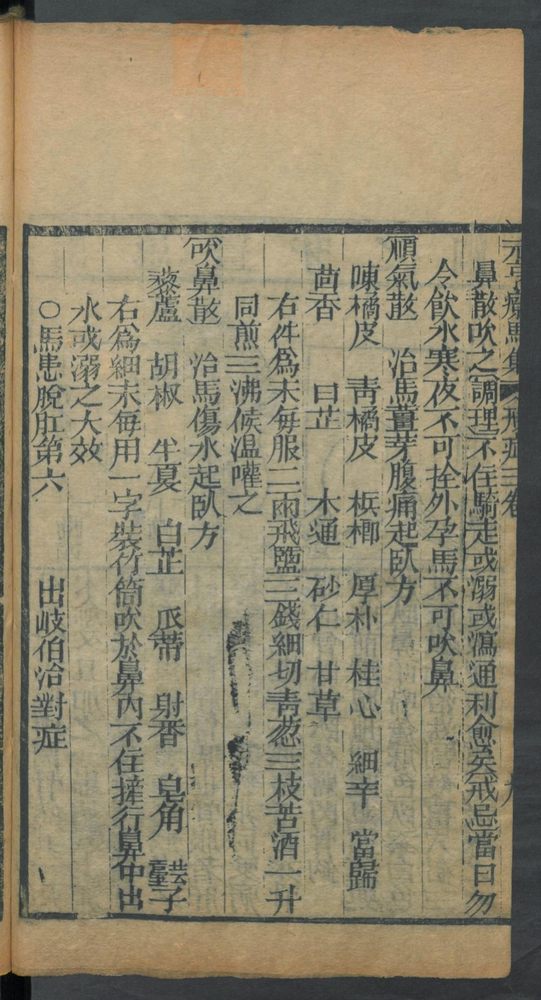 元亨療馬集 病症三卷 九
鼻散吹之調理不住騎走或溺或瀉通利愈矣戒忌當日勿
令飲水寒夜不可拴外孕馬不可吹鼻
順氣散 治馬薑芽腹痛起臥方
陳橘皮 靑橘皮 梹榔 厚朴 桂心 細辛 當歸
茴香 白芷 木通 砂仁 甘草
右件爲末每服二兩飛鹽三錢細切青葱三枝苦酒一升
同煎三沸候温嚾之
吹鼻散 治馬傷水起臥方
藜蘆 胡椒 半夏 白芷 瓜蒂 射香 皂角 蕓薹子
右爲細末每用一字裝竹筒吹於鼻內不住擁行鼻中出
水或溺之大效
○馬患脫肛第六 出岐伯治對症